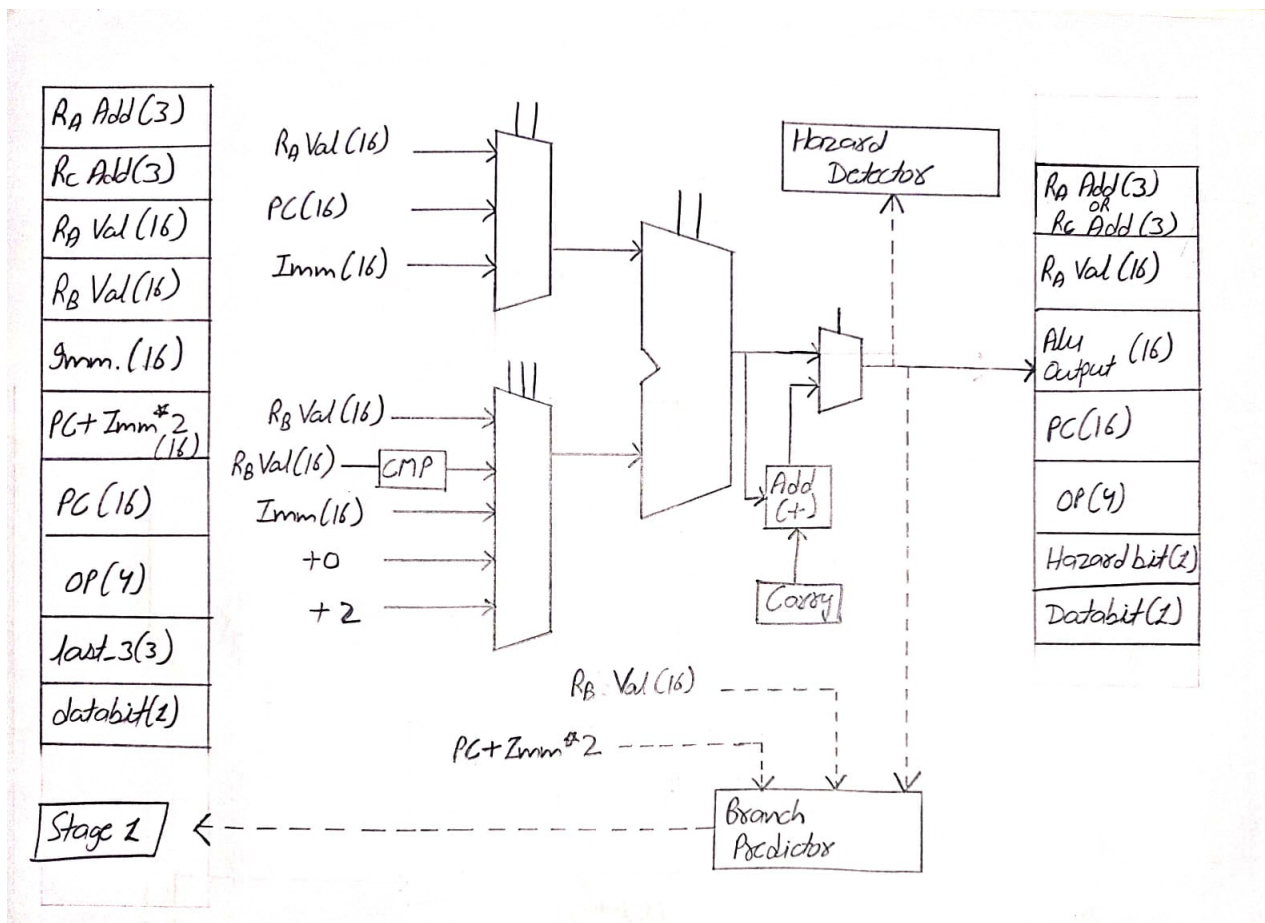 RA Add(3)
RC Add(3)
RA Val(16)
RB Val(16)
Imm.(16)
PC+Imm*2
(16)
PC(16)
OP(4)
last_3(3)
databit(1)
Stage 1
RA Val(16)
PC(16)
Imm(16)
RB Val(16)
RB Val(16)
CMP
Imm(16)
+0
+2
Add
(+)
Carry
Hazard
Detector
RB Val(16)
PC+Imm*2
Branch
Predictor
RA Add(3)
OR
RC Add(3)
RA Val(16)
Alu
Output (16)
PC(16)
OP(4)
Hazard bit(1)
Databit(1)